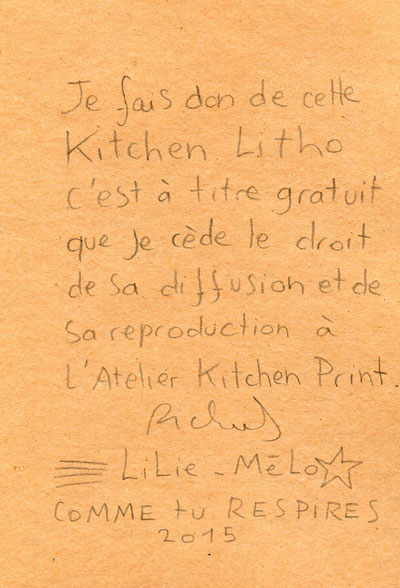 Je fais don de cette
Kitchen Litho
c'est à titre gratuit
que je cède le droit
de sa diffusion et de
sa reproduction à
L'Atelier Kitchen Print.
LiLie - MéLo
COMME tu RESPIRES
2015